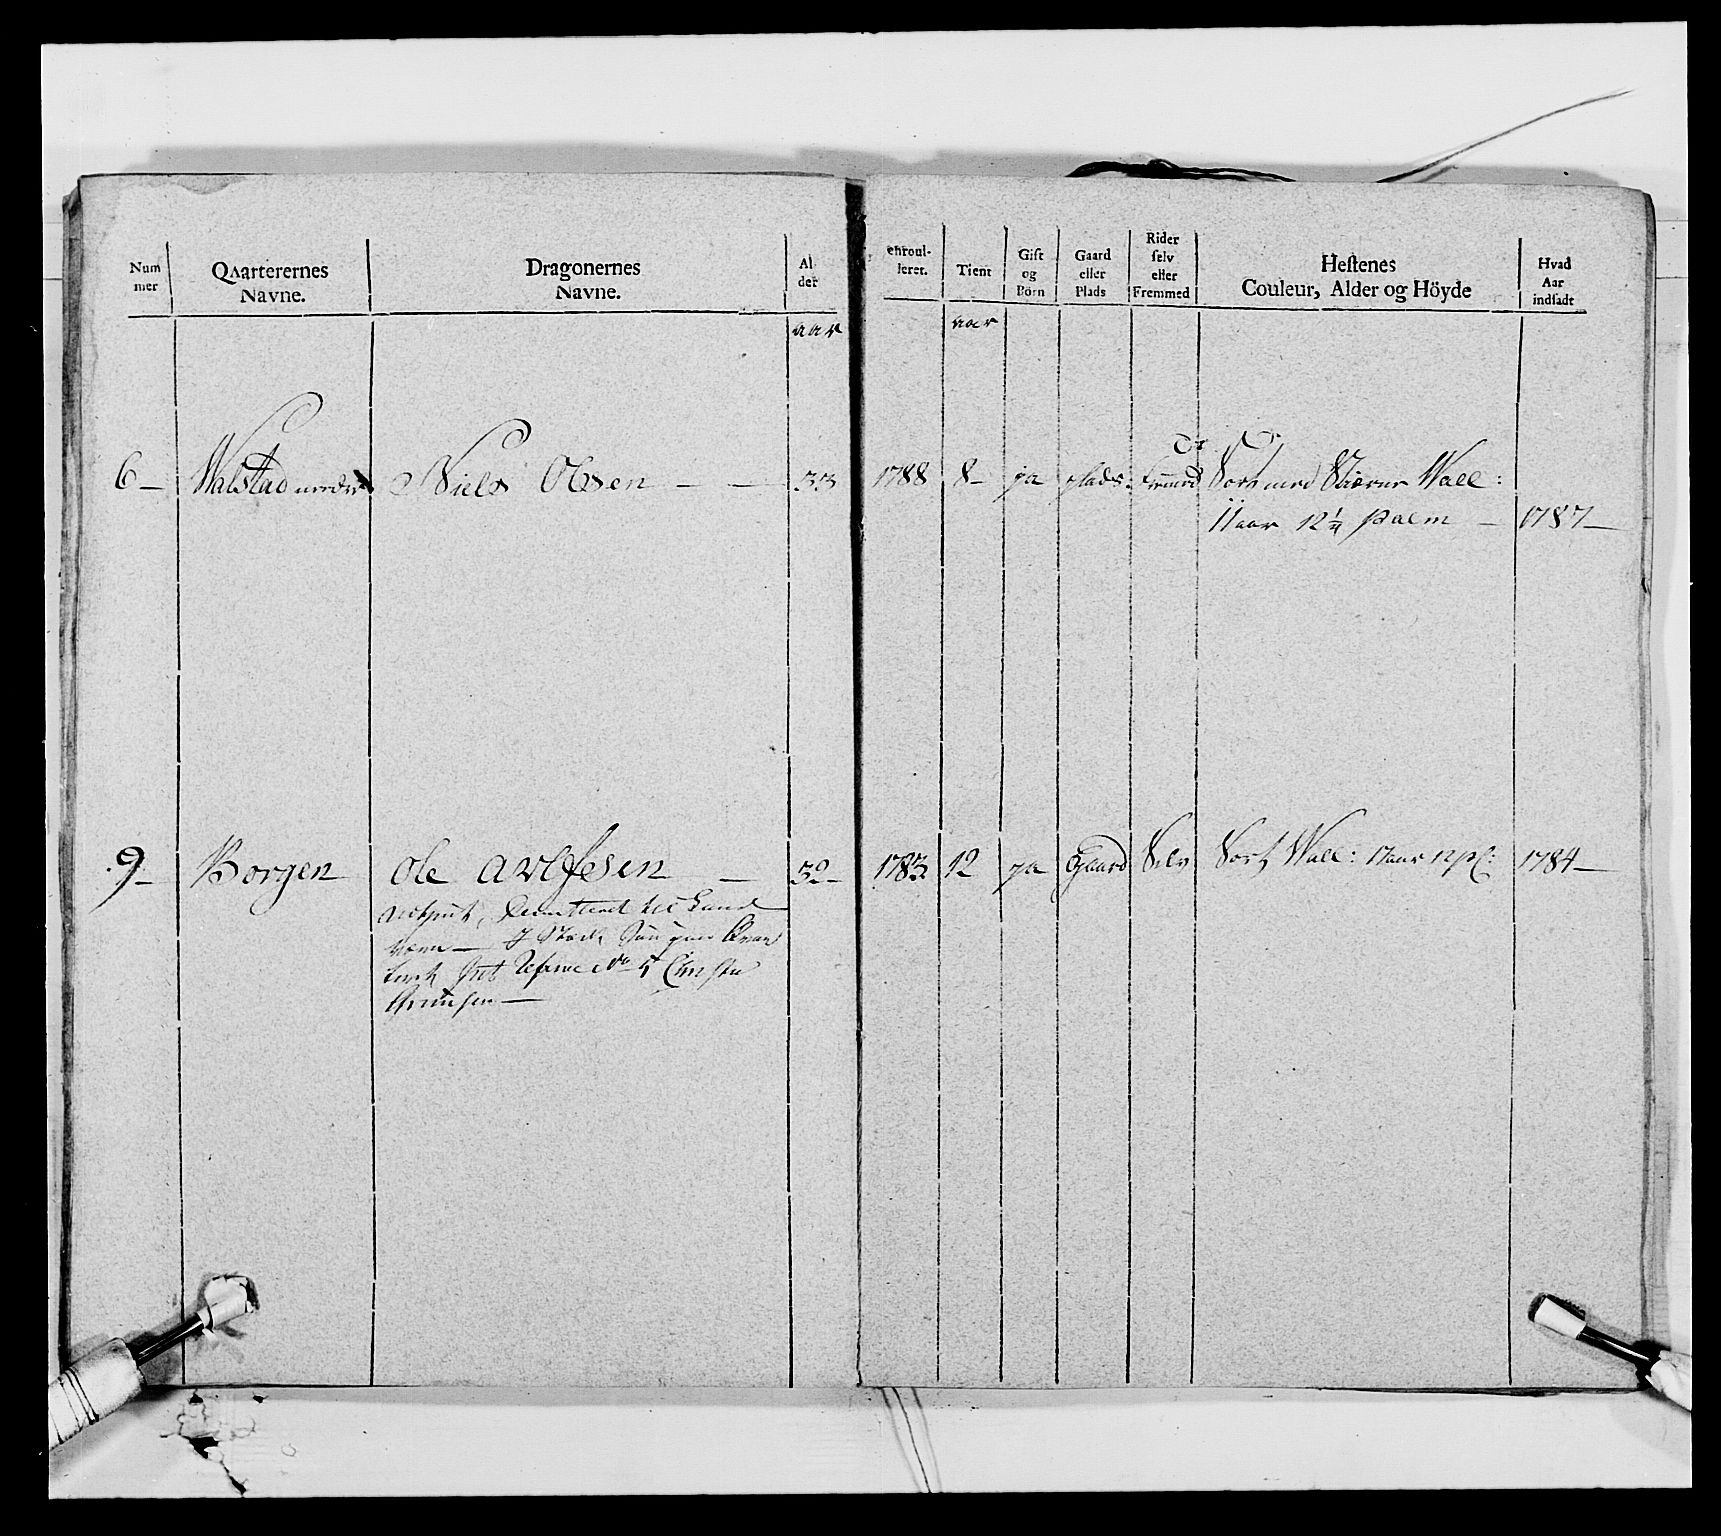 Num
mer
Qvarterernes
Navne.
Dragonernes
Navne.
Al
der
enroul-
leret.
Tient
Gift
og
Börn
Gaard
eller
Plads
Rider
selv
eller
Fremmed
Hestenes
Couleur, Alder og Höyde
Hvad
Aar
indsadt
aar
aar
6 Walstad nedre Niels Olsen 33 1788 8 ja plads Fremed Sort med Stierne Wall:
11 aar 12 1/4 Palm 1787
9 Borgen Ole 30 1783 12 ja Gaard Selv Sort Wall: 11 aar 12 pl: 1784
til Land
No 5